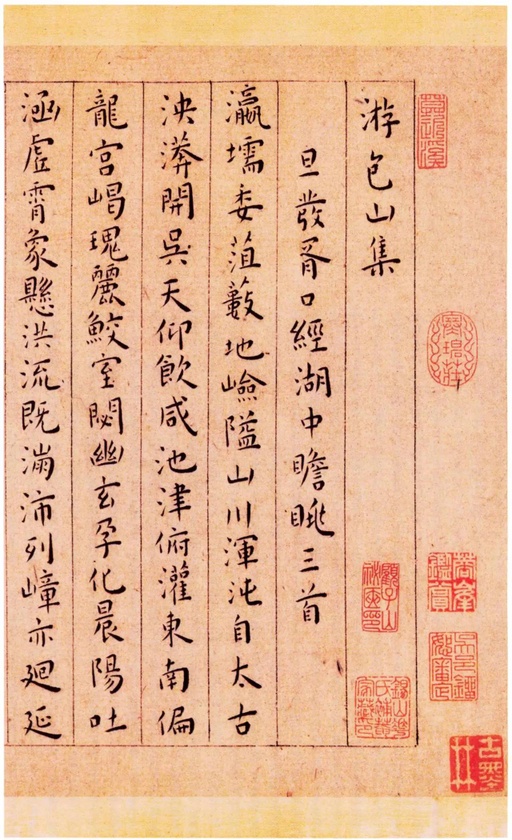 游包山集
旦發胥口經湖中瞻眺三首
瀛壖委菹藪地嶮隘山川渾沌自太古
泱漭開吳天仰飲咸池津俯灌東南偏
龍宮瑰麗鮫室閟幽玄孕化晨陽吐
涵虛霄象懸洪流既滿沛列嶂亦廻延